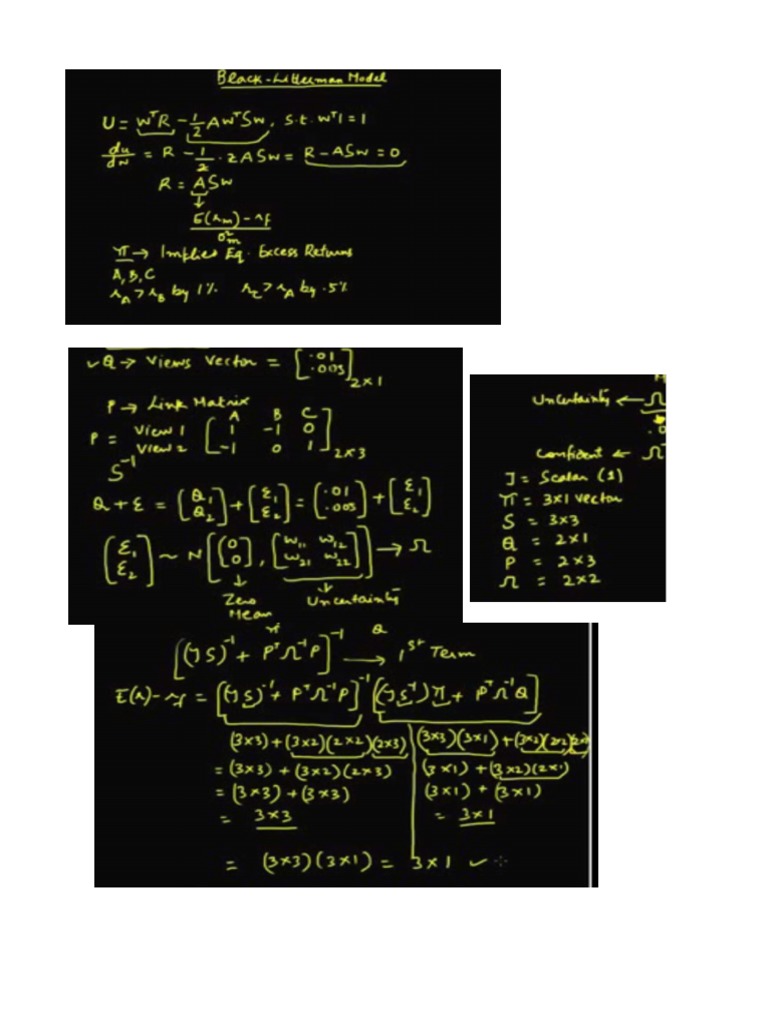 Black-Litterman Model
U = WᵀR - 1/2 AWᵀSW, s.t. Wᵀ1 = 1
du/dw = R - 1/2 · 2ASW = R - ASW = 0
R = ASW
↓
E(rₘ) - rf / σ²ₘ
π → Implied Eq. Excess Returns
A, B, C
r_A > r_B by 1% r_C > r_A by .5%
✓Q → Views Vector = [.01 .005]₂ₓ₁
P → Link Matrix
A B C
P = View 1 [1 -1 0
View 2 -1 0 1]₂ₓ₃
S⁻¹
Q + ε = (Q₁ Q₂) + (ε₁ ε₂) = (.01 .005) + (ε₁ ε₂)
(ε₁ ε₂) ~ N[(0 0), [w₁₁ w₁₂ w₂₁ w₂₂]] → Ω
↓ ↓
Zero Mean Uncertainty
Uncertainty ← Ω
Confident ← Ω
J = Scalar (1)
π = 3x1 vector
S = 3x3
Q = 2x1
P = 2x3
Ω = 2x2
π Q
[(JS)⁻¹ + PᵀΩ⁻¹P]⁻¹ → 1st Term
E(r) - rf = [(JS)⁻¹ + PᵀΩ⁻¹P]⁻¹ [(JS⁻¹)π + PᵀΩ⁻¹Q]
(3x3) + (3x2)(2x2)(2x3) (3x3)(3x1) + (3x2)(2x2)
= (3x3) + (3x2)(2x3) (3x1) + (3x2)(2x1)
= (3x3) + (3x3) (3x1) + (3x1)
= 3x3 = 3x1
= (3x3)(3x1) = 3x1 ✓